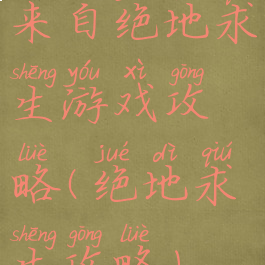 来自绝地求
shēng yóu xì gōng
生游戏攻
lüè jué dì qiú
略(绝地求
shēng gōng lüè
生攻略)